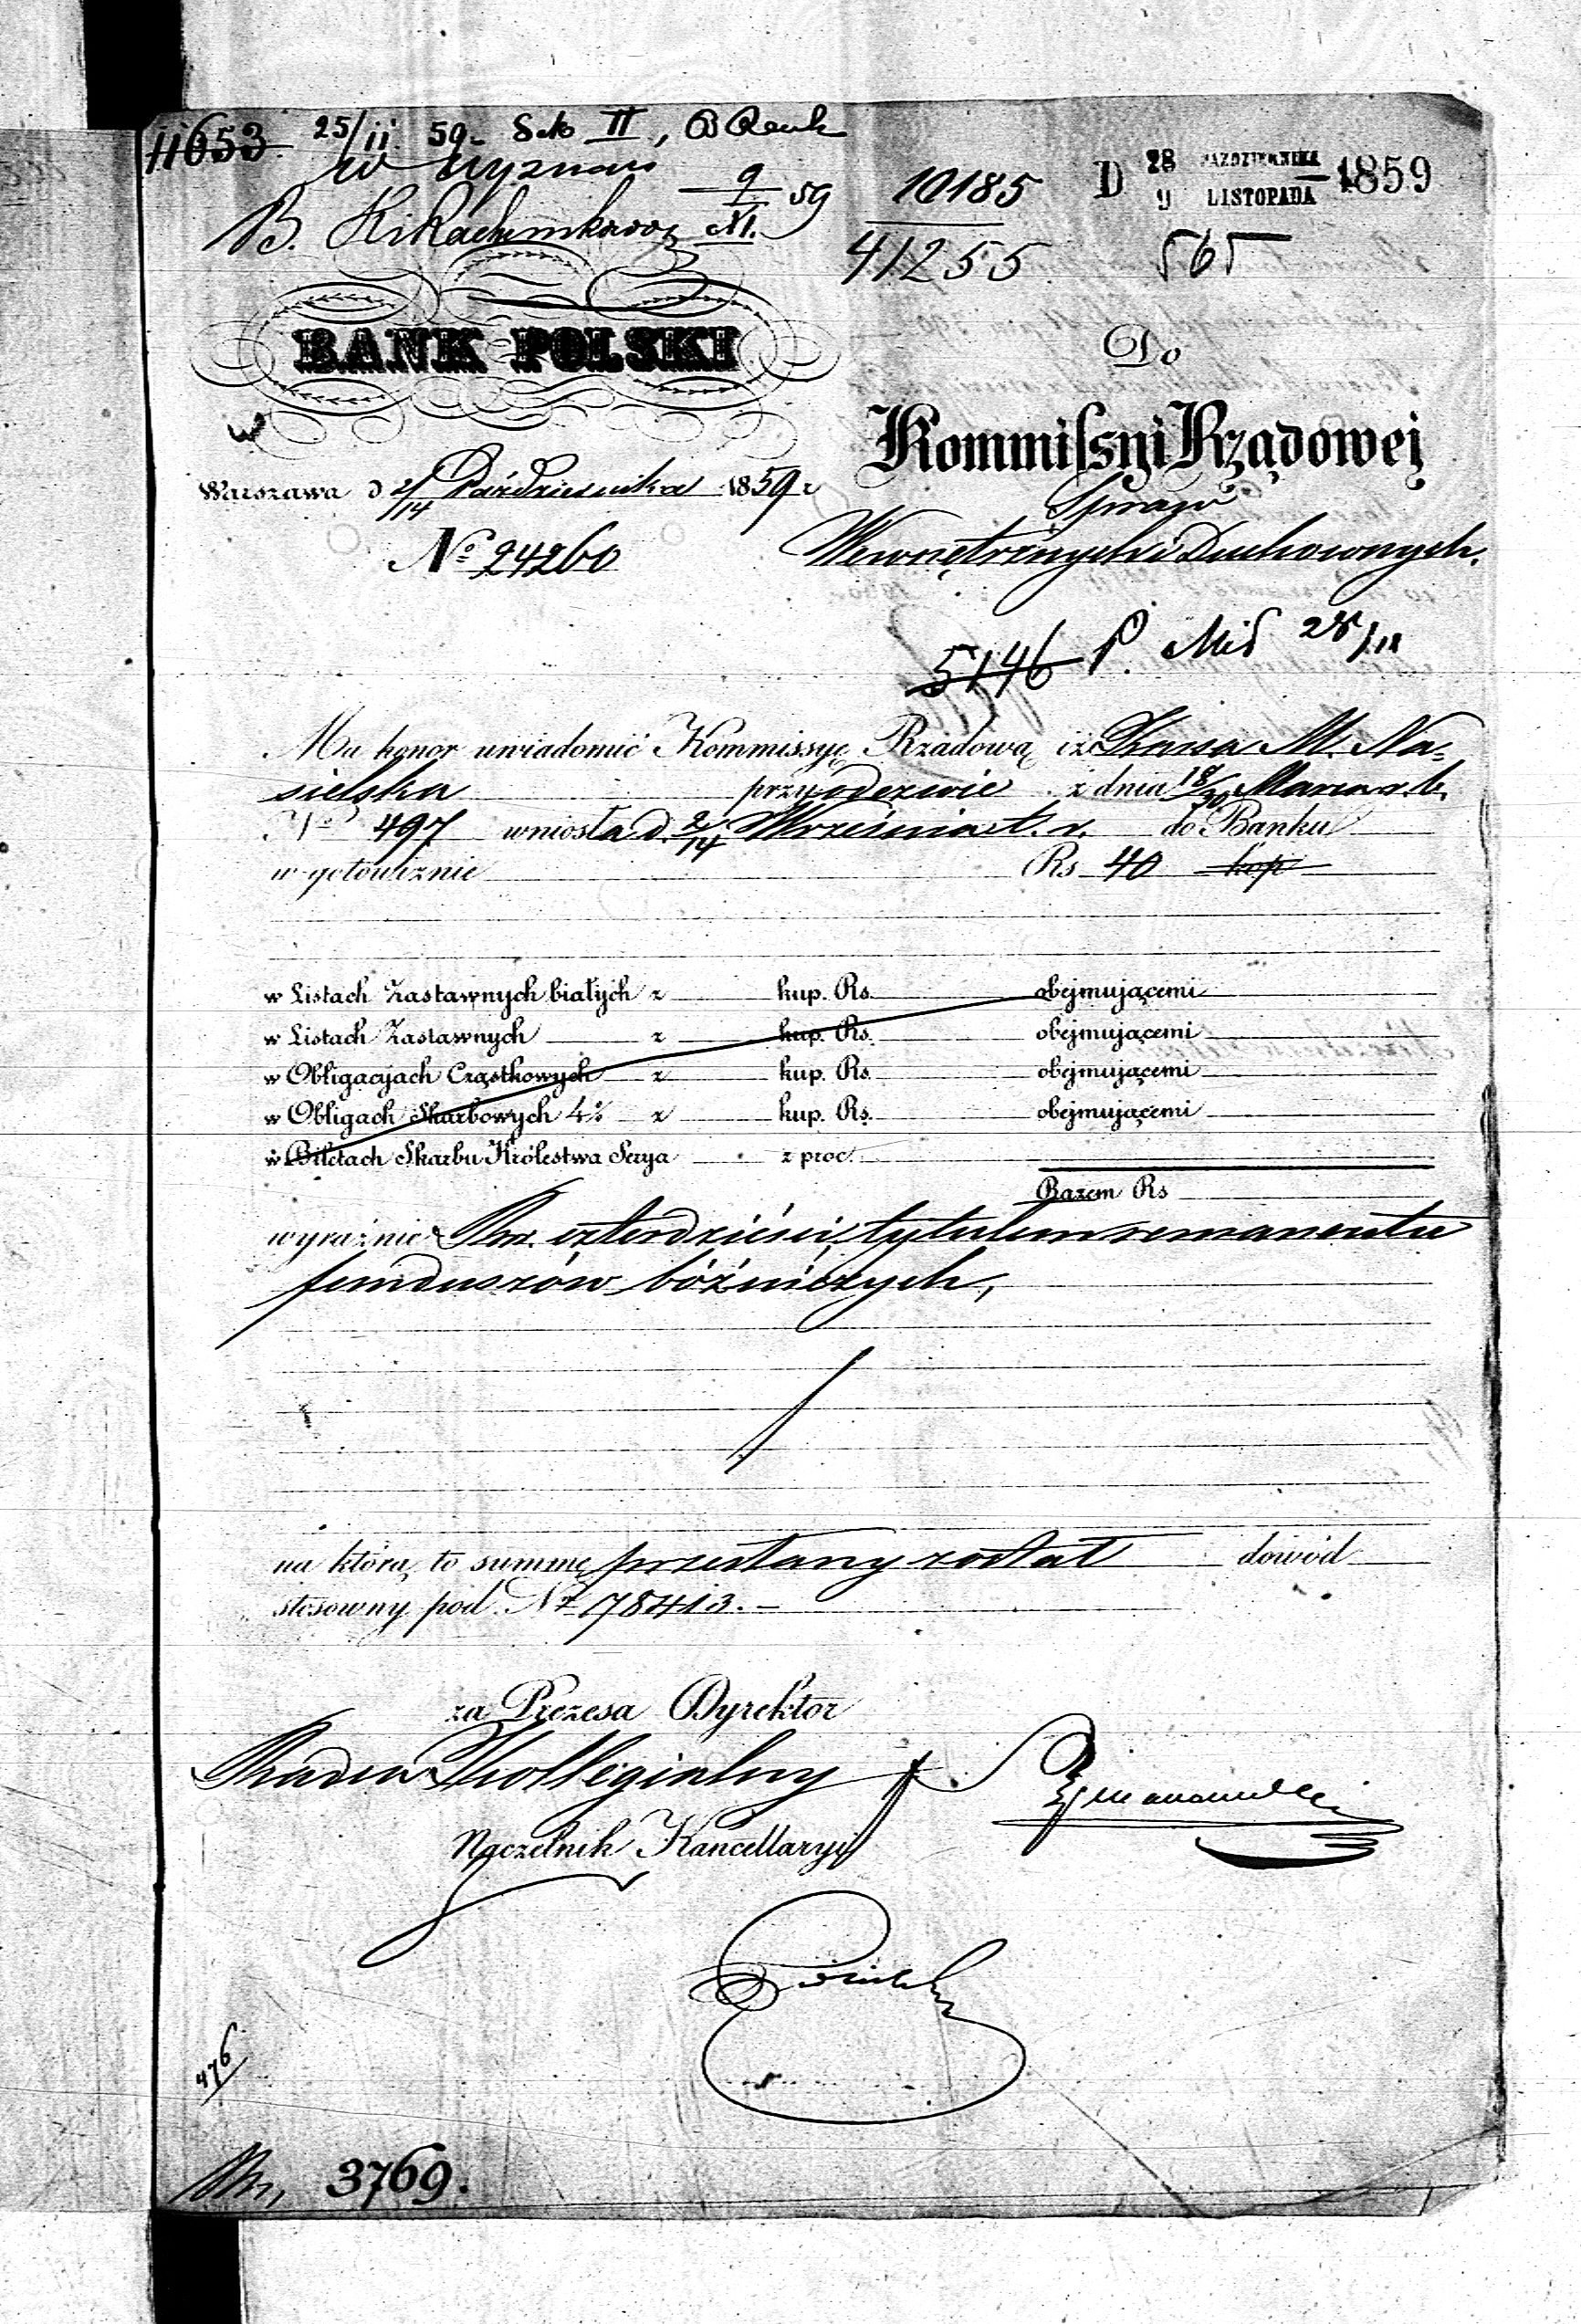 11653. 25/11 59. II,
w wyznań
B. 9/XI. 59
10185
41255
D 28 PAŹDZIERNIKA
9 LISTOPADA 1859
565
BANK POLSKI
Do
Kommissyi Rządowej
Spraw
Wewnętrznych i Duchownych.
Warszawa d 2/14 Października 1859 r
No 24260
5146 P. 28/11
Ma honor uwiadomić Kommissyę Rządową iż Kassa M. Na=
sielska przy odezwie z dnia 18/30 Marca r. b.
No 497 wniosła d. 2/14 Września t. r. do Banku
w gotowiznie Rs 40 kop
w Listach Zastawnych białych z kup. Rs. obejmującemi
w Listach Zastawnych z kup. Rs. obejmującemi
w Obligacyjach Cząstkowych z kup. Rs. obejmującemi
w Obligach Skarbowych 4% z kup. Rs. obejmującemi
w Biletach Skarbu Królestwa Serya z proc.
Razem Rs
wyraźnie Rs. czterdzieści, tytułem remanentu
funduszów bóźniczych,
na którą to summę przesłany został dowód
stosowny pod No 78413.-
za Prezesa Dyrektor
Radca Kollegialny
Naczelnik Kancellaryi
476
3769.